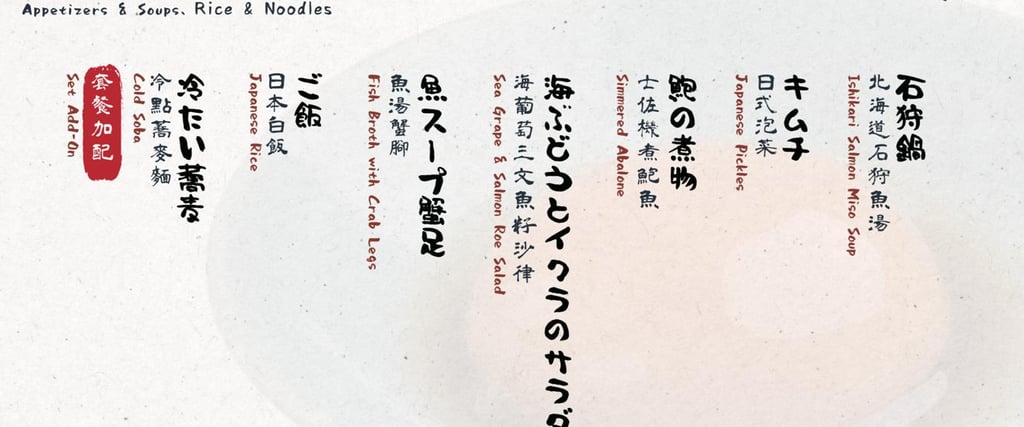 Appetizers & Soups, Rice & Noodles
石狩鍋
北海道石狩魚湯
Ishikari Salmon Miso Soup
キムチ
日式泡菜
Japanese Pickles
鮑の煮物
士佐機煮鮑魚
Simmered Abalone
海ぶどうとイクラのサラダ
海葡萄三文魚籽沙律
Sea Grape & Salmon Roe Salad
魚スープ蟹足
魚湯蟹腳
Fish Broth with Crab Legs
ご飯
日本白飯
Japanese Rice
冷たい蕎麦
冷點蕎麥麵
Cold Soba
套餐加配
Set Add-On